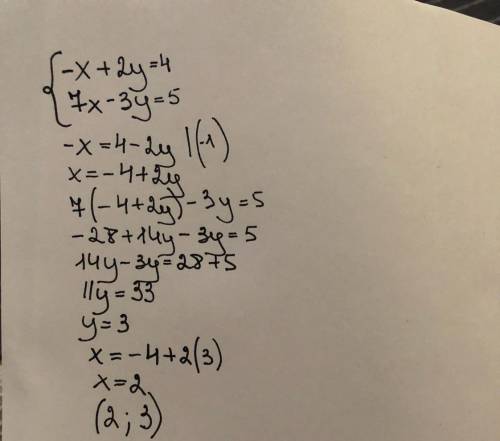 -x+2y=4
7x-3y=5
-x=4-2y |(-1)
x=-4+2y
7(-4+2y)-3y=5
-28+14y-3y=5
14y-3y=28+5
11y=33
y=3
x=-4+2(3)
x=2
(2;3)